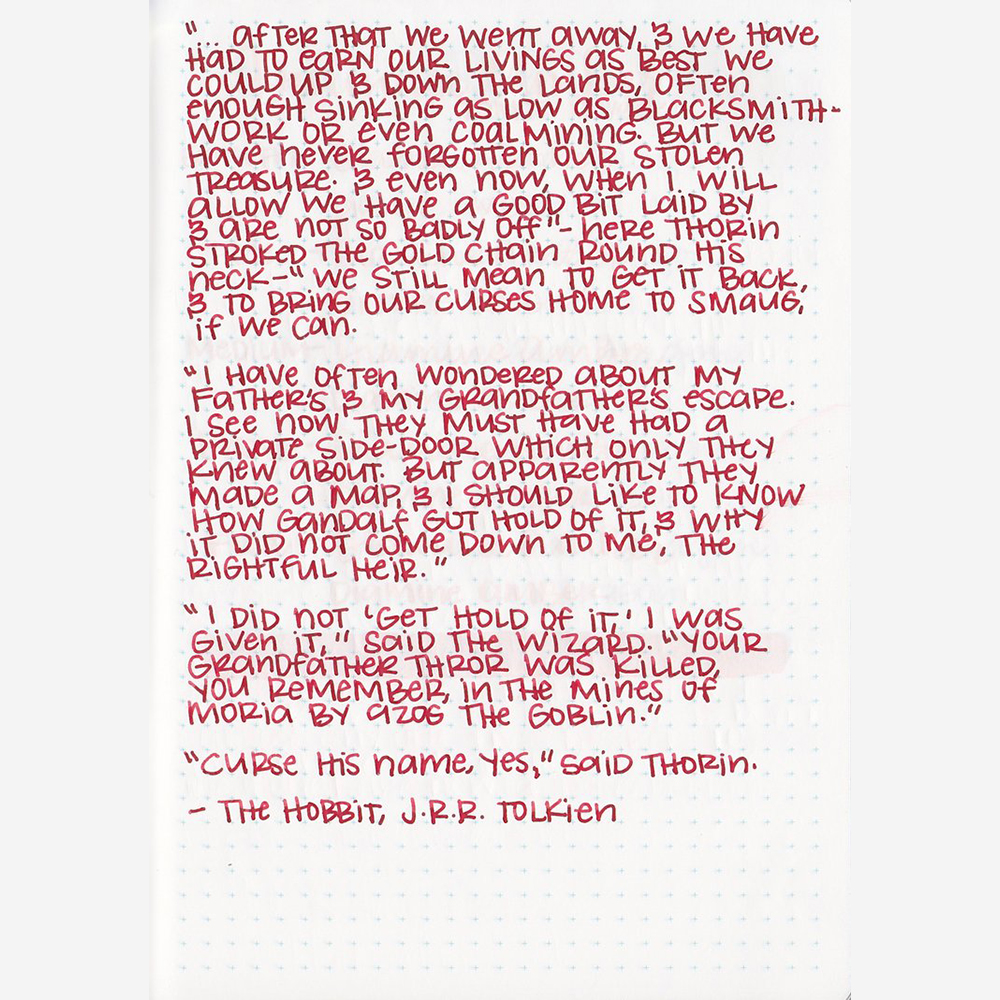 "... after that we went away, & we have
had to earn our livings as best we
could up & down the lands, often
enough sinking as low as blacksmith-
work or even coalmining. But we
have never forgotten our stolen
treasure. & even now, when I will
allow we have a good bit laid by
& are not so badly off" - here Thorin
stroked the gold chain round his
neck - "we still mean to get it back,
& to bring our curses home to Smaug,
if we can.
"I have often wondered about my
father's & my grandfather's escape.
I see now they must have had a
private side-door which only they
knew about. But apparently they
made a map, & I should like to know
how Gandalf got hold of it, & why
it did not come down to me, the
rightful heir."
"I did not 'get hold of it,' I was
given it," said the wizard. "Your
grandfather Thror was killed,
you remember, in the mines of
Moria by Azog the Goblin."
"Curse his name, yes," said Thorin.
- The Hobbit, J.R.R. Tolkien